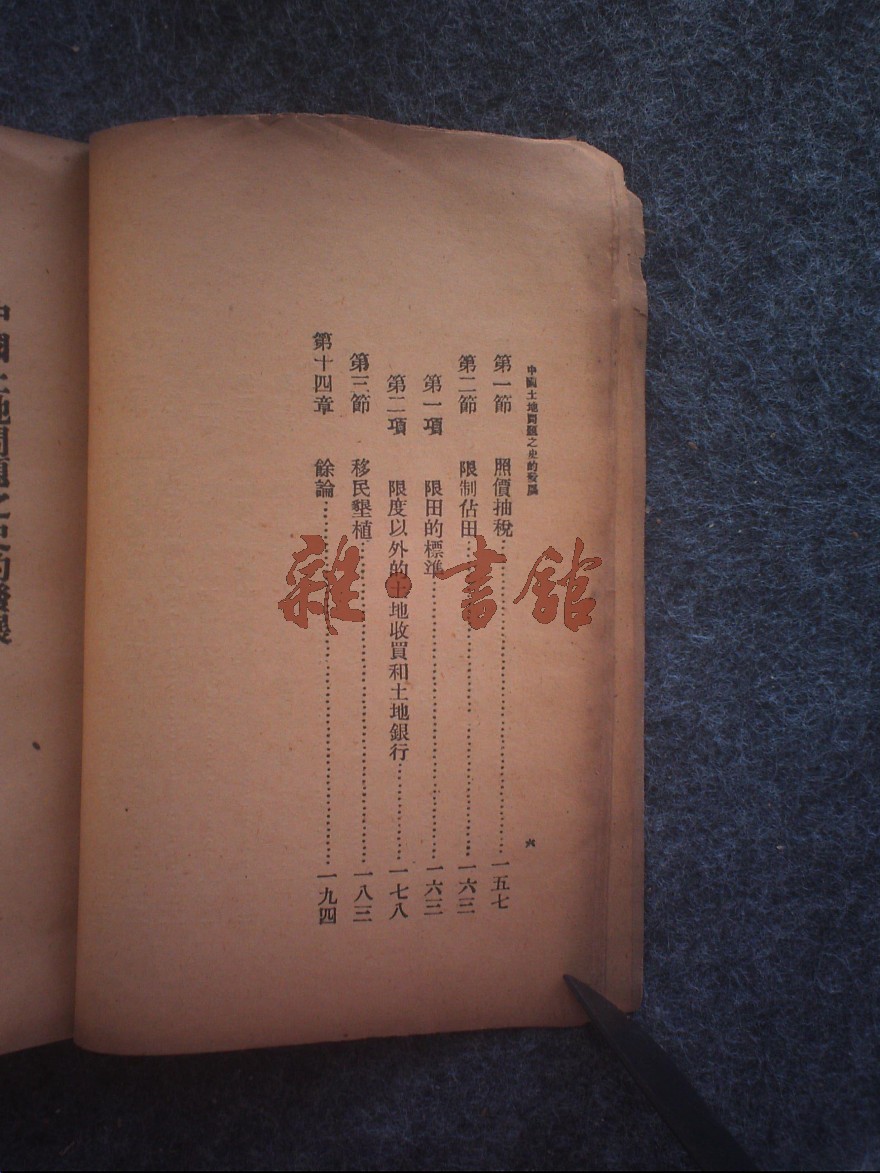 中國土地問題之史的發展
六
第一節 照價抽稅⋯⋯⋯⋯⋯⋯⋯⋯一五七
第二節 限制佔田⋯⋯⋯⋯⋯⋯⋯⋯一六三
第一項 限田的標準⋯⋯⋯⋯⋯⋯⋯⋯一六三
第二項 限度以外的土地收買和土地銀行⋯⋯⋯⋯一七八
第三節 移民墾植⋯⋯⋯⋯⋯⋯⋯⋯一八三
第十四章 餘論⋯⋯⋯⋯⋯⋯⋯⋯一九四
中國土地問題之史的發展
雜·書館